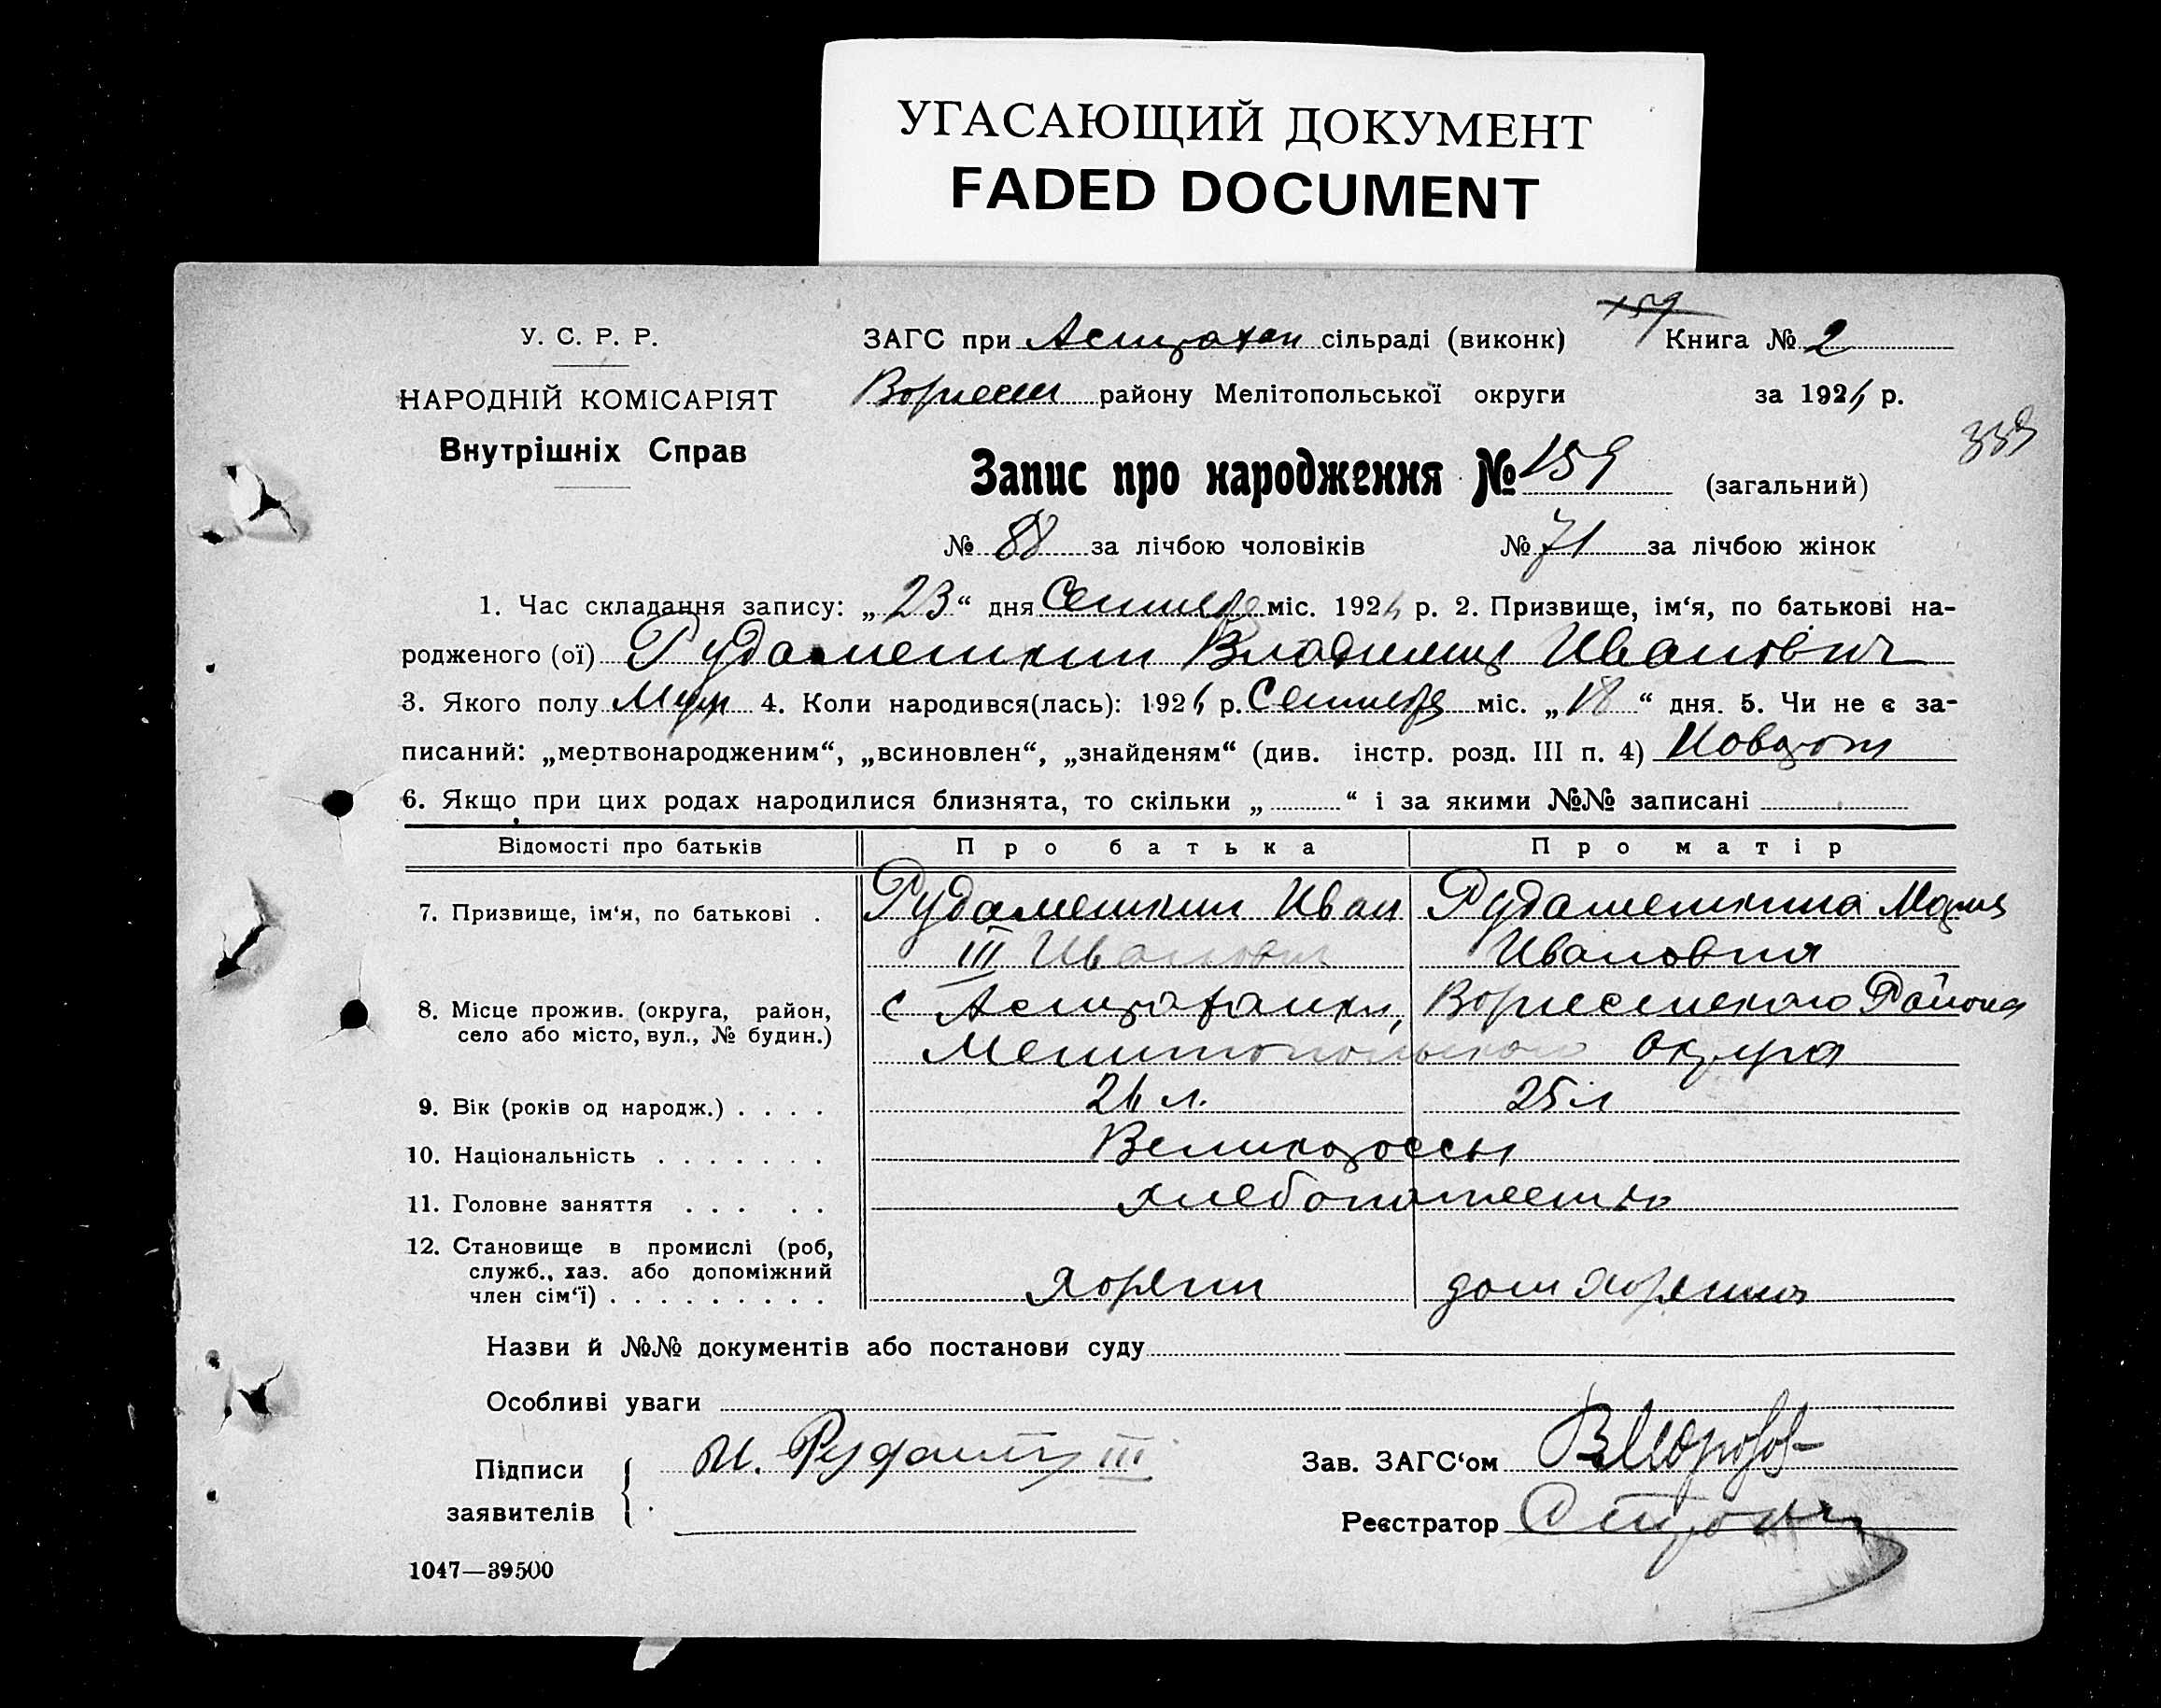 УГАСАЮЩИЙ ДОКУМЕНТ
FADED DOCUMENT
159
У. С. Р. Р.
НАРОДНІЙ КОМІСАРІЯТ
Внутрішніх Справ
ЗАГС при Астрахан сільраді (виконк) Книга № 2
району Мелітопольської округи за 1924 р.
339
Запис про народження № 159 (загальний)
№ 88 за лічбою чоловіків № 71 за лічбою жінок
1. Час складання запису: „23“ дня Сентября міс. 1924 р. 2. Призвище, ім‘я, по батькові на-
родженого (ої) Рудаметкин Владимир Иванович
3. Якого полу Муж 4. Коли народився(лась): 1924 р. Сентября міс. „18“ дня. 5. Чи не є за-
писаний: „мертвонародженим“, „всиновлен“, „знайденям“ (див. інстр. розд. III п. 4)
6. Якщо при цих родах народилися близнята, то скільки „ “ і за якими №№ записані
Відомості про батьків Про батька Про матір
7. Призвище, ім‘я, по батькові . Рудаметкин Иван Рудаметкина Мария
III Иванович Ивановна
8. Місце прожив. (округа, район, с Астраханка, Района
село або місто, вул., № будин.) Мелитопольского Округа
9. Вік (років од народж.) . . . . 24 л. 25 л
10. Національність . . . . . . . Великороссы
11. Головне заняття . . . . . хлебопашество
12. Становище в промислі (роб,
служб., хаз. або допоміжний
член сім‘ї) . . . . . . . . . хозяин дом хозяйка
Назви й №№ документів або постанови суду
Особливі уваги
Підписи И. III Зав. ЗАГС‘ом В Морозов
заявителів Реєстратор
1047—39500